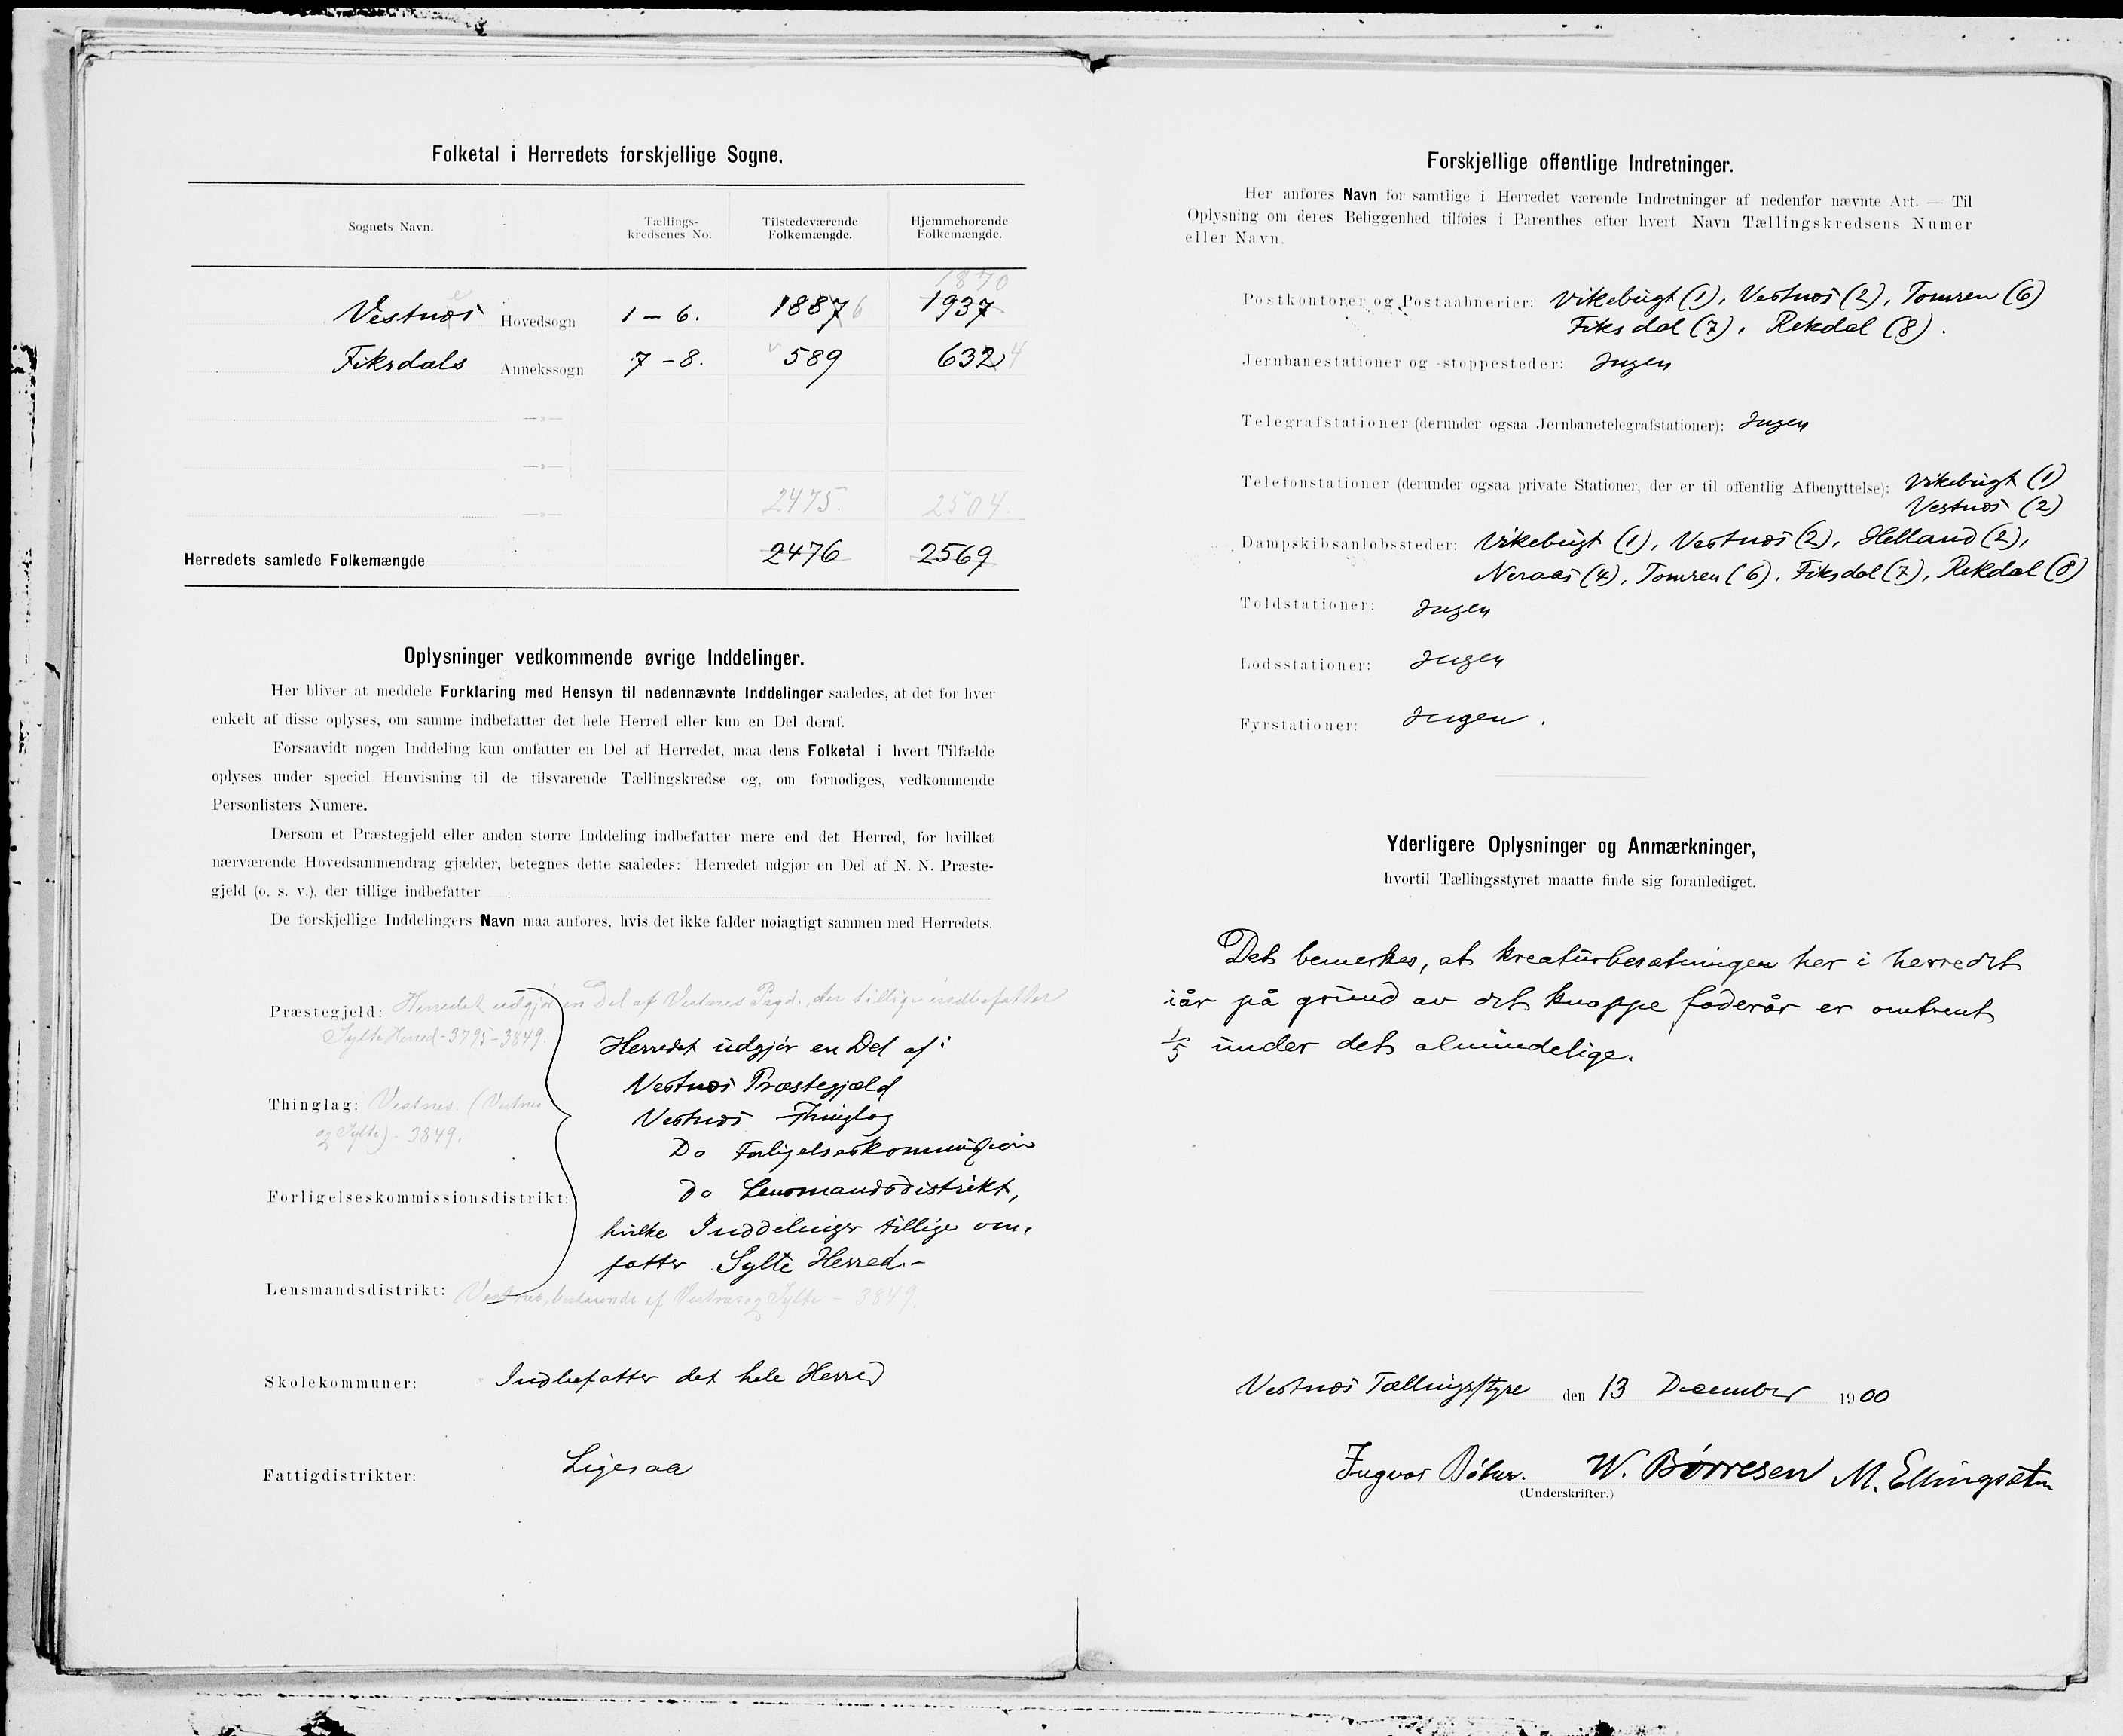 Folketal i Herredets forskjellige Sogne.
Sognets Navn.
Tællings-
kredsenes No.
Tilstedeværende
Folkemængde.
Hjemmehørende
Folkemængde.
1870
Vestnæs Hovedsogn 1 – 6. 1887 6 1937
Fiksdals Annekssogn 7 – 8. 589 632 4
—»—
—»—
—»— 2475. 2504.
Herredets samlede Folkemængde 2476 2569
Oplysninger vedkommende øvrige Inddelinger.
Her bliver at meddele Forklaring med Hensyn til nedennævnte Inddelinger saaledes, at det for hver
enkelt af disse oplyses, om samme indbefatter det hele Herred eller kun en Del deraf.
Forsaavidt nogen Inddeling kun omfatter en Del af Herredet, maa dens Folketal i hvert Tilfælde
oplyses under speciel Henvisning til de tilsvarende Tællingskredse og, om fornødiges, vedkommende
Personlisters Numere.
Dersom et Præstegjeld eller anden større Inddeling indbefatter mere end det Herred, for hvilket
nærværende Hovedsammendrag gjælder, betegnes dette saaledes: Herredet udgjør en Del af N. N. Præste-
gjeld (o. s. v.), der tillige indbefatter
De forskjellige Inddelingers Navn maa anføres, hvis det ikke falder nøiagtigt sammen med Herredets.
Præstegjeld: Herredet udgjør en Del af Vestnes Pgd., der tillige indbefatter
Sylte Herred - 3795 - 3849.
Herredet udgjør en Del af:
Vestnæs Præstegjæld
Thinglag: Vestnes (Vestnes
og Sylte) - 3849.
Vestnæs Thinglag
Do Forligelseskommission
Forligelseskommissionsdistrikt:
Do Lensmandsdistrikt,
hvilke Inddelinger tillige om-
fatter Sylte Herred.-
Lensmandsdistrikt: Vestnes, bestaaende af Vestnes og Sylte - 3849.
Skolekommuner: Indbefatter det hele Herred
Fattigdistrikter: Ligesaa
Forskjellige offentlige Indretninger.
Her anføres Navn for samtlige i Herredet værende Indretninger af nedenfor nævnte Art. — Til
Oplysning om deres Beliggenhed tilføies i Parenthes efter hvert Navn Tællingskredsens Numer
eller Navn.
Postkontorer og Postaabnerier: Vikebugt (1), Vestnæs (2), Tomren (6)
Fiksdal (7), Rekdal (8).
Jernbanestationer og -stoppesteder: Ingen
Telegrafstationer (derunder ogsaa Jernbanetelegrafstationer): Ingen
Telefonstationer (derunder ogsaa private Stationer, der er til offentlig Afbenyttelse): Vikebugt (1)
Vestnæs (2)
Dampskibsanløbssteder: Vikebugt (1), Vestnæs (2), Helland (2),
Neraas (4), Tomren (6), Fiksdal (7), Rekdal (8)
Toldstationer: Ingen
Lodsstationer: Ingen
Fyrstationer: Ingen.
Yderligere Oplysninger og Anmærkninger,
hvortil Tællingsstyret maatte finde sig foranlediget.
Det bemerkes, at kreaturbesætningen her i herredet
iår på grund av det knappe foderår er omtrent
1/5 under det almindelige.
Vestnæs Tællingsstyre den 13 December 1900
Ingvar Bøhn. W. Børresen M. Ellingsæter
(Underskrifter.)